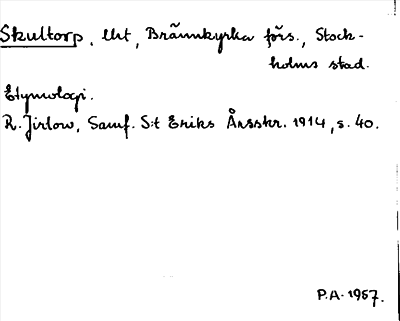 Skultorp, lht, Brännkyrka förs., Stock-
holms stad.
Etymologi.
R. Jirlow, Samf. S:t Eriks Årsskr. 1914, s. 40.
P.A. 1957.